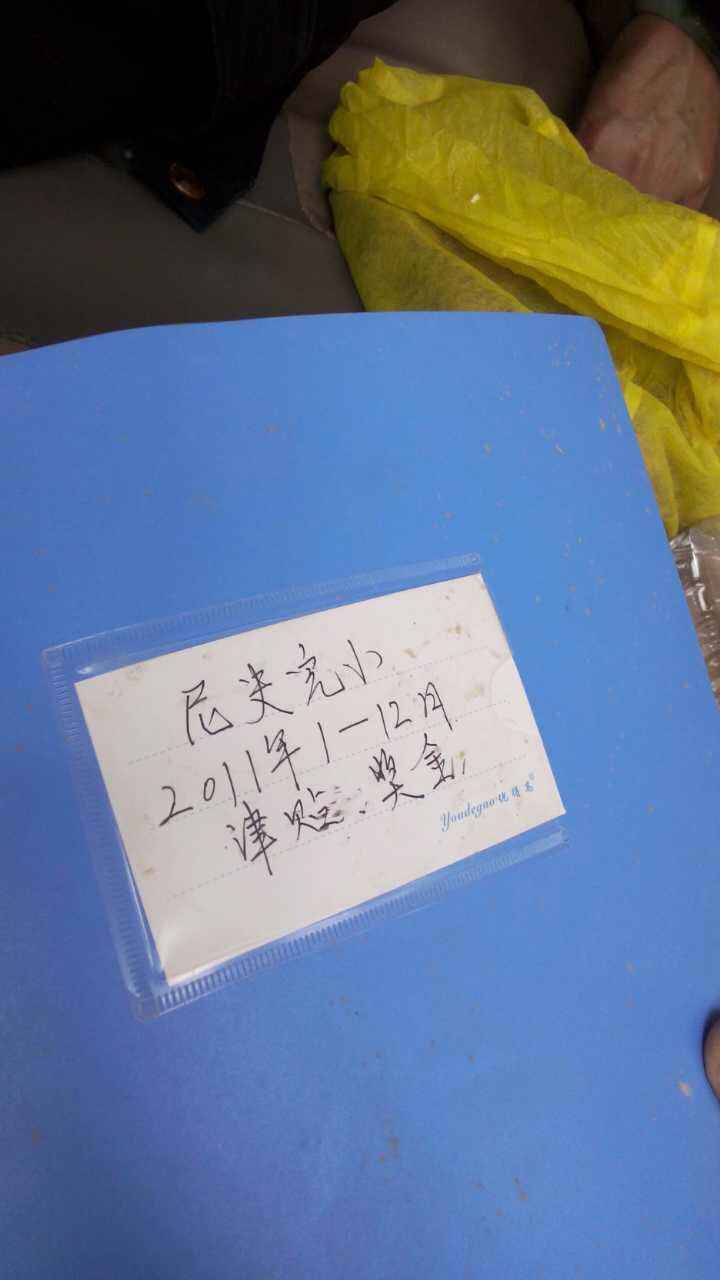 尼美完小
2011年1—12月
津贴、奖金
Youdegao优得高